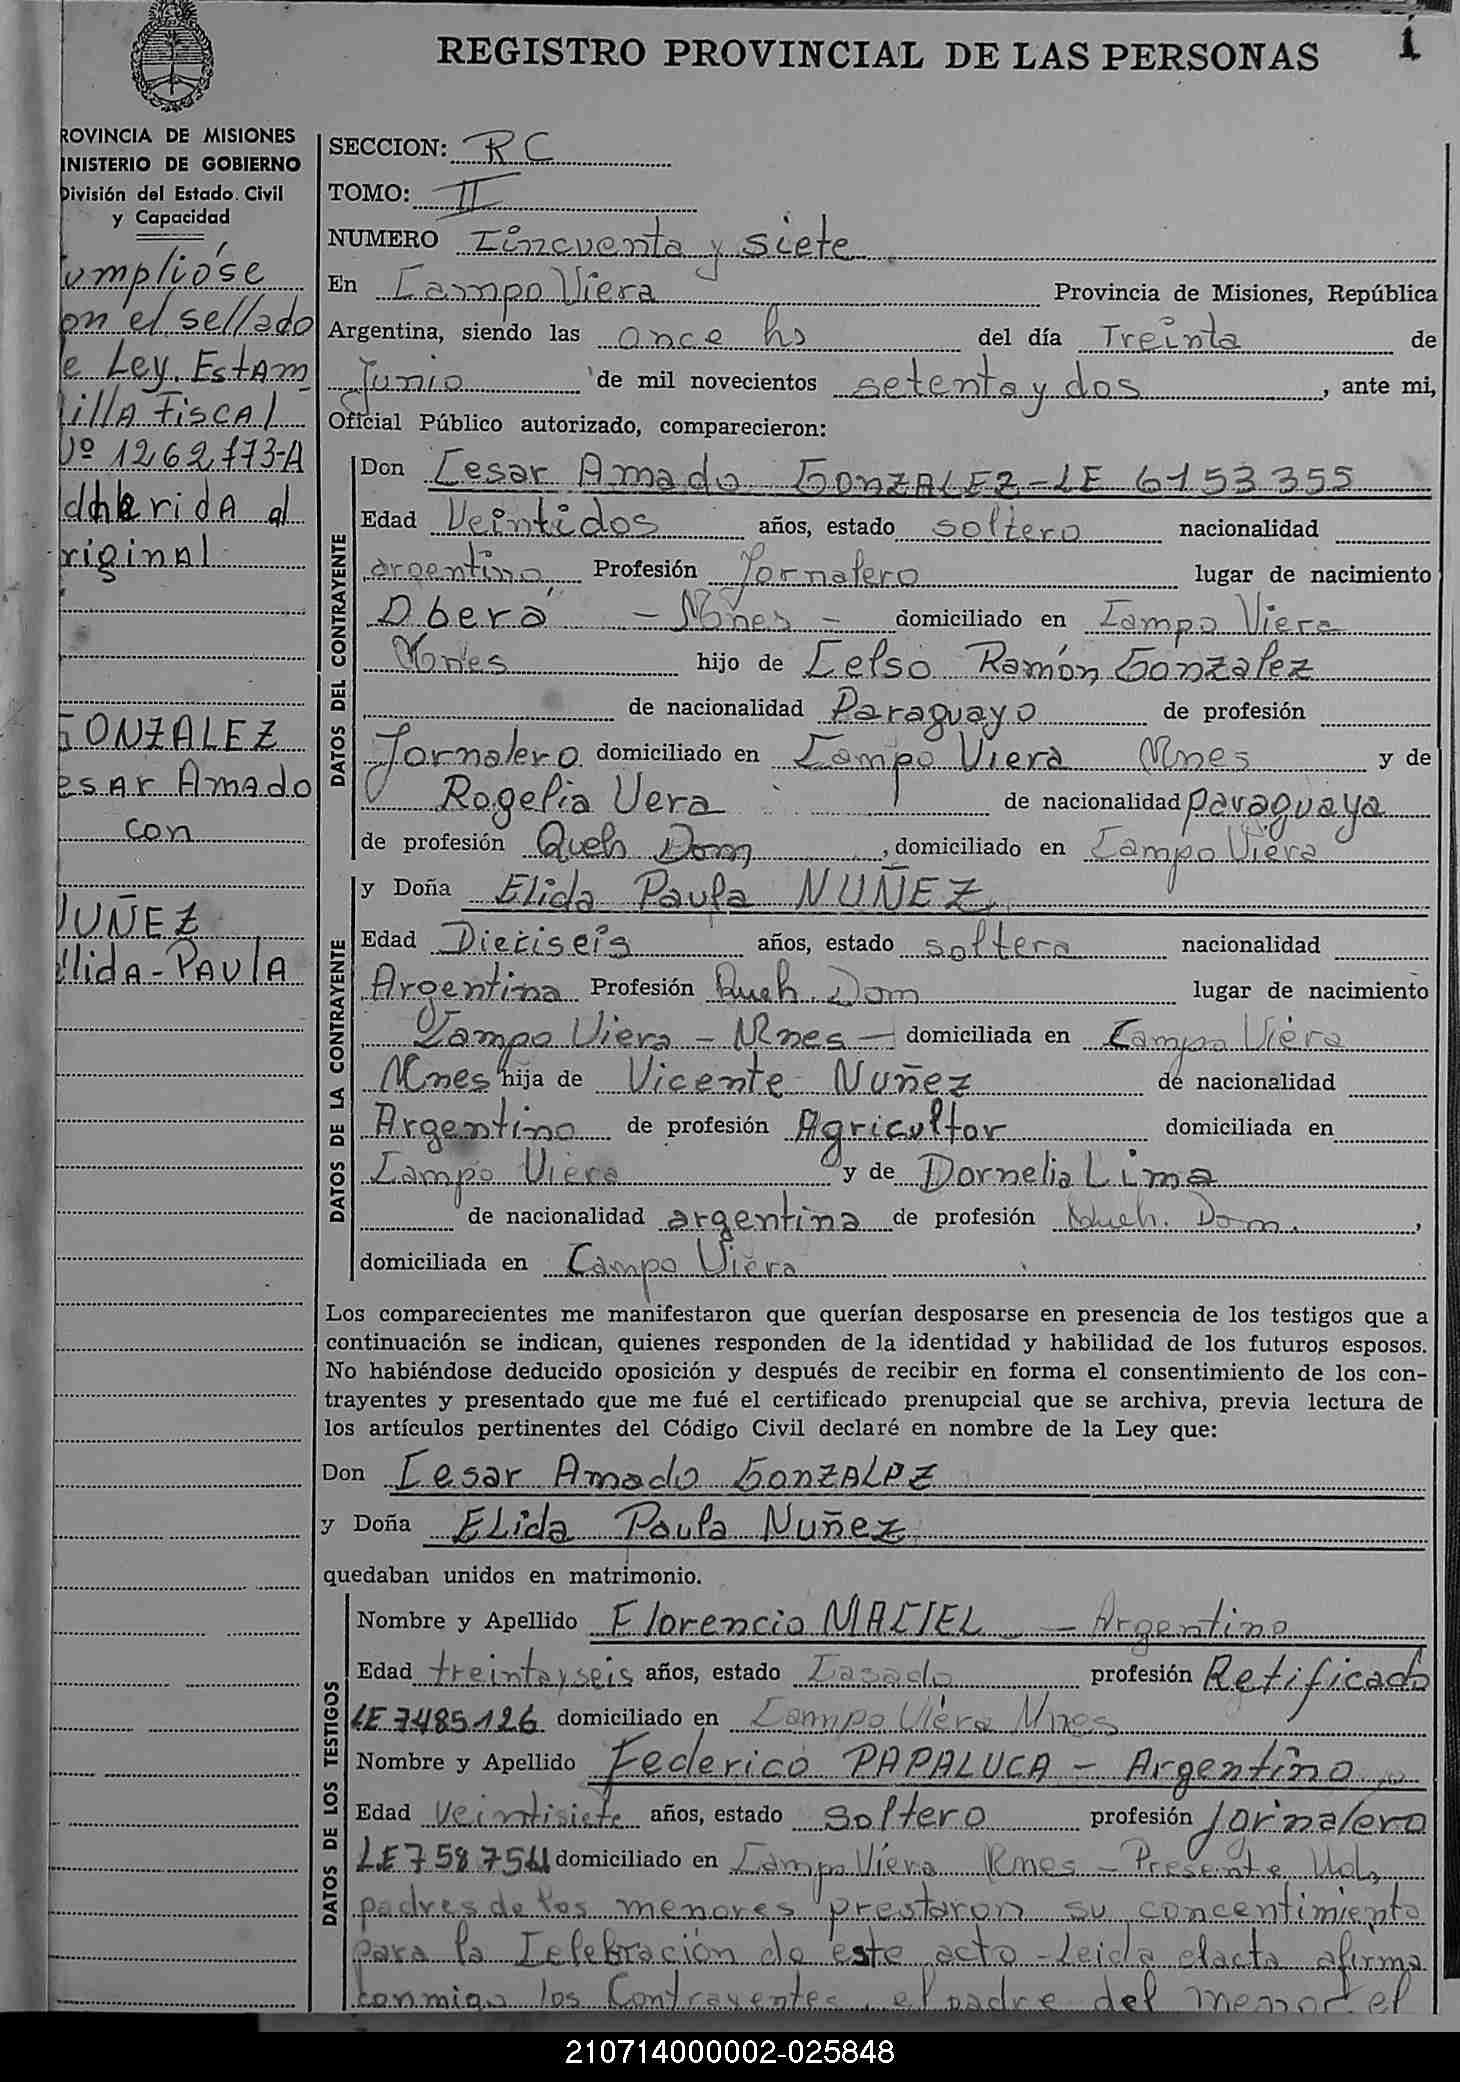 REGISTRO PROVINCIAL DE LAS PERSONAS
1
ROVINCIA DE MISIONES
INISTERIO DE GOBIERNO
División del Estado Civil
y Capacidad
umplióse
on el sellado
e Ley. Estam
illa Fiscal
Nº 1262773-A
dherida al
riginal
GONZALEZ
esar Amado
con
NUÑEZ
Elida-Paula
SECCION: RC
TOMO: II
NUMERO Cincuenta y siete
En Campo Viera Provincia de Misiones, República
Argentina, siendo las once hs del día Treinta de
Junio de mil novecientos setenta y dos, ante mi,
Oficial Público autorizado, comparecieron:
DATOS DEL CONTRAYENTE
Don Cesar Amado GONZALEZ-LE 6153355
Edad Veintidos años, estado soltero nacionalidad
argentino Profesión Jornalero lugar de nacimiento
Oberá - Mnes - domiciliado en Campo Viera
Mnes hijo de Celso Ramón Gonzalez
de nacionalidad Paraguayo de profesión
Jornalero domiciliado en Campo Viera Mnes y de
Rogelia Vera de nacionalidad paraguaya
de profesión Queh Dom, domiciliado en Campo Viera
DATOS DE LA CONTRAYENTE
y Doña Elida Paula NUÑEZ
Edad Dieciseis años, estado soltera nacionalidad
Argentina Profesión Queh. Dom lugar de nacimiento
Campo Viera - Mnes - domiciliada en Campo Viera
Mnes hija de Vicente Nuñez de nacionalidad
Argentino de profesión Agricultor domiciliada en
Campo Viera y de Dornelia Lima
de nacionalidad argentina de profesión Queh. Dom.,
domiciliada en Campo Viera
Los comparecientes me manifestaron que querían desposarse en presencia de los testigos que a
continuación se indican, quienes responden de la identidad y habilidad de los futuros esposos.
No habiéndose deducido oposición y después de recibir en forma el consentimiento de los con-
trayentes y presentado que me fué el certificado prenupcial que se archiva, previa lectura de
los artículos pertinentes del Código Civil declaré en nombre de la Ley que:
Don Cesar Amado GONZALEZ
y Doña Elida Paula Nuñez
quedaban unidos en matrimonio.
DATOS DE LOS TESTIGOS
Nombre y Apellido Florencio MACIEL - Argentino
Edad treinta y seis años, estado Casado profesión Retificado
LE 7485126 domiciliado en Campo Viera Mnes
Nombre y Apellido Federico PAPALUCA - Argentino
Edad Veintisiete años, estado Soltero profesión Jornalero
LE 7587511 domiciliado en Campo Viera Mnes - Presente
padres de los menores prestaron su concentimiento
para la Celebración de este acto - Leida el acta afirma
conmigo los Contrayentes, el padre del menor el
210714000002-025848